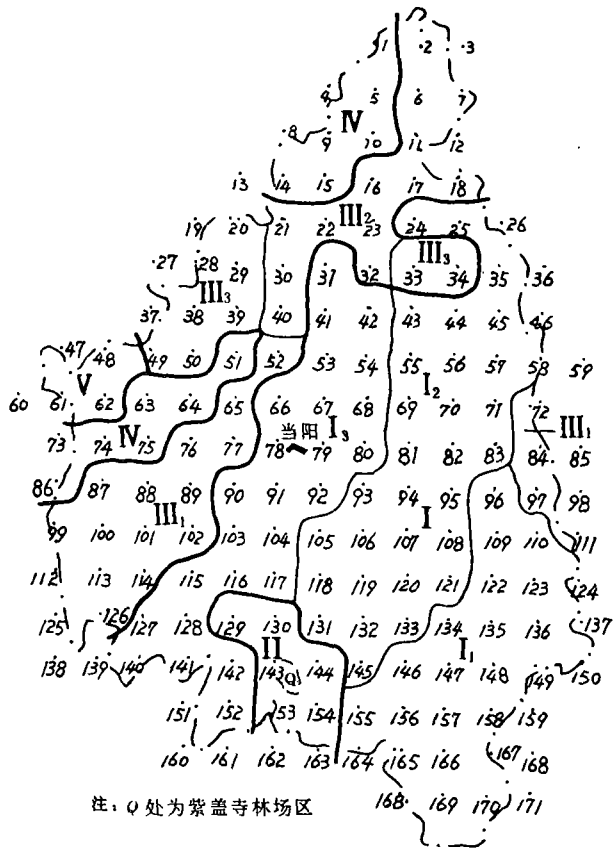 1 2 3
4 5 6 7
IV
8 9 10 11 12
13 14 15 16 17 18
III₂
19 20 21 22 23 24 25 26
III₃
27 28 29 30 31 32 33 34 35 36
III₃
37 38 39 40 41 42 43 44 45 46
47 48 49 50 51 52 53 54 55 56 57 58 59
V I₂
60 61 62 63 64 65 66 67 68 69 70 71 72
当阳 I₃ III₁
IV
73 74 75 76 77 78 79 80 81 82 83 84 85
86 87 88 89 90 91 92 93 94 95 96 97 98
III₁ I
99 100 101 102 103 104 105 106 107 108 109 110 111
112 113 114 115 116 117 118 119 120 121 122 123 124
125 126 127 128 129 130 131 132 133 134 135 136 137
II I₁
138 139 140 141 142 143 144 145 146 147 148 149 150
Q
151 152 153 154 155 156 157 158 159
160 161 162 163 164 165 166 167 168
168 169 170 171
注：Q处为紫盖寺林场区